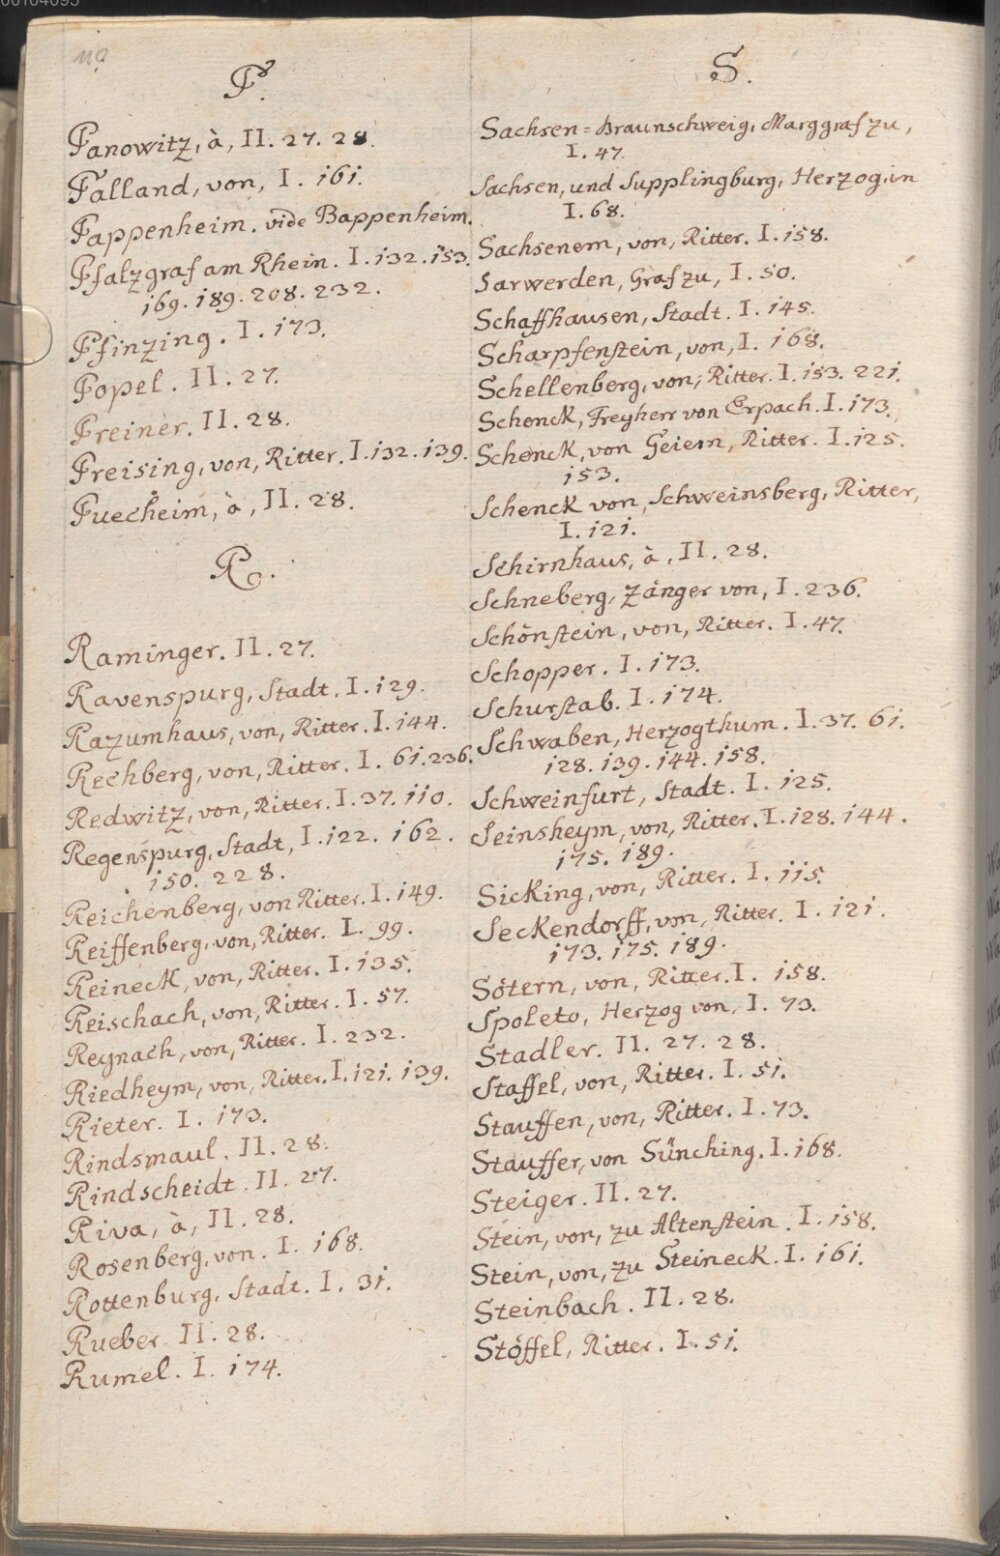 00104095
110
P.
Panowitz, à, II. 27. 28.
Palland, von, I. 161.
Pappenheim. vide Bappenheim.
Pfalzgraf am Rhein. I. 132. 153.
169. 189. 208. 232.
Pfinzing. I. 173.
Popel. II. 27.
Preiner. II. 28.
Preising, von, Ritter. I. 132. 139.
Puecheim, à, II. 28.
R.
Raminger. II. 27.
Ravenspurg, Stadt. I. 129.
Razumhaus, von, Ritter. I. 144.
Rechberg, von, Ritter. I. 61. 236.
Redwitz, von, Ritter. I. 37. 110.
Regenspurg, Stadt, I. 122. 162.
150. 228.
Reichenberg, von Ritter. I. 149.
Reiffenberg, von, Ritter. I. 99.
Reineck, von, Ritter. I. 135.
Reischach, von, Ritter. I. 57.
Reynach, von, Ritter. I. 232.
Riedheym, von, Ritter. I. 121. 139.
Rieter. I. 173.
Rindsmaul. II. 28.
Rindscheidt. II. 27.
Riva, à, II. 28.
Rosenberg, von. I. 168.
Rottenburg, Stadt. I. 31.
Rueber. II. 28.
Rumel. I. 174.
S.
Sachsen=Braunschweig, Marggraf zu,
I. 47.
Sachsen, und Supplingburg, Herzog in
I. 68.
Sachsenem, von, Ritter. I. 158.
Sarwerden, Graf zu, I. 50.
Schaffhausen, Stadt. I. 145.
Scharpfenstein, von, I. 168.
Schellenberg, von, Ritter. I. 153. 221.
Schenck, Freyherr von Erpach. I. 173.
Schenck, von Geiern, Ritter. I. 125.
153.
Schenck von, Schweinsberg, Ritter,
I. 121.
Schirnhaus, à, II. 28.
Schneberg, Zänger von, I. 236.
Schönstein, von, Ritter. I. 47.
Schopper. I. 173.
Schurstab. I. 174.
Schwaben, Herzogthum. I. 37. 61.
128. 139. 144. 158.
Schweinfurt, Stadt. I. 125.
Seinsheym, von, Ritter. I. 128. 144.
175. 189.
Sicking, von, Ritter. I. 115.
Seckendorff, von, Ritter. I. 121.
173. 175. 189.
Sötern, von, Ritter. I. 158.
Spoleto, Herzog von, I. 73.
Stadler. II. 27. 28.
Staffel, von, Ritter. I. 51.
Stauffen, von, Ritter. I. 73.
Stauffer, von Sünching. I. 168.
Steiger. II. 27.
Stein, von, zu Altenstein. I. 158.
Stein, von, zu Steineck. I. 161.
Steinbach. II. 28.
Stöffel, Ritter. I. 51.